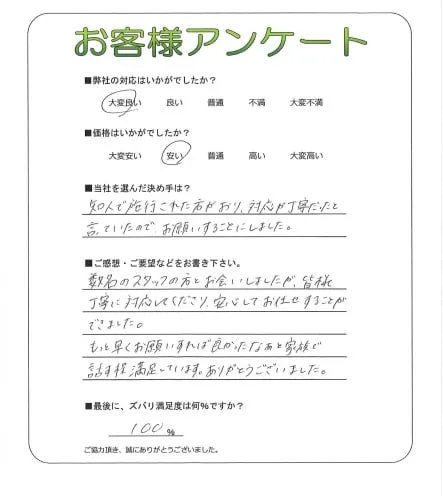 お客様アンケート
■弊社の対応はいかがでしたか？
大変良い 良い 普通 不満 大変不満
■価格はいかがでしたか？
大変安い 安い 普通 高い 大変高い
■当社を選んだ決め手は？
知人で施行された方がおり、対応が丁寧だったと
言っていたので、お願いすることにしました。
■ご感想・ご要望などをお書き下さい。
数名のスタッフの方とお会いしましたが、皆様
丁寧に対応してくださり、安心してお任せすることが
できました。
もっと早くお願いすれば良かったなぁと家族で
話す程満足しています。ありがとうございました。
■最後に、ズバリ満足度は何%ですか？
100 %
ご協力頂き、誠にありがとうございました。